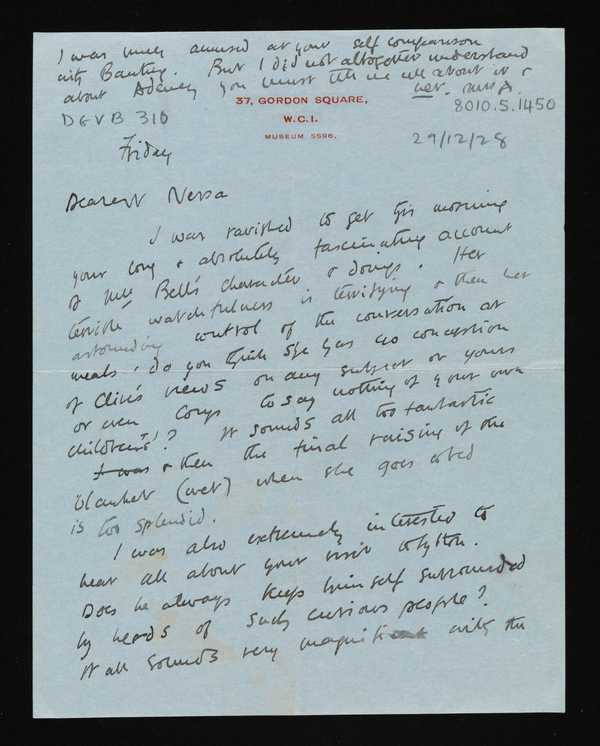 I was much amused at your self comparison
with Banting. But I did not altogether understand
about Adeney you must tell me all about it &
her.
37, GORDON SQUARE,
W.C.1.
MUSEUM 5596.
8010.5.1450
DGVB 310
29/12/28
Friday
Dearest Nessa
I was ravished to get this morning
your long & absolutely fascinating account
of Bell's character & doings. Her
terrible watchfulness is terrifying & then her
astounding control of the conversation at
meals. Do you think she has no conception
of Clive's views on any subject or yours
or even Corys to say nothing of your own
childrens'? It sounds all too fantastic
I was & then the final raising of the
blanket (wet) when she goes to bed
is too splendid.
I was also extremely interested to
hear all about your visit to Lytton.
Does he always keep himself surrounded
by herds of such curious people?
It all sounds very magnificent with the